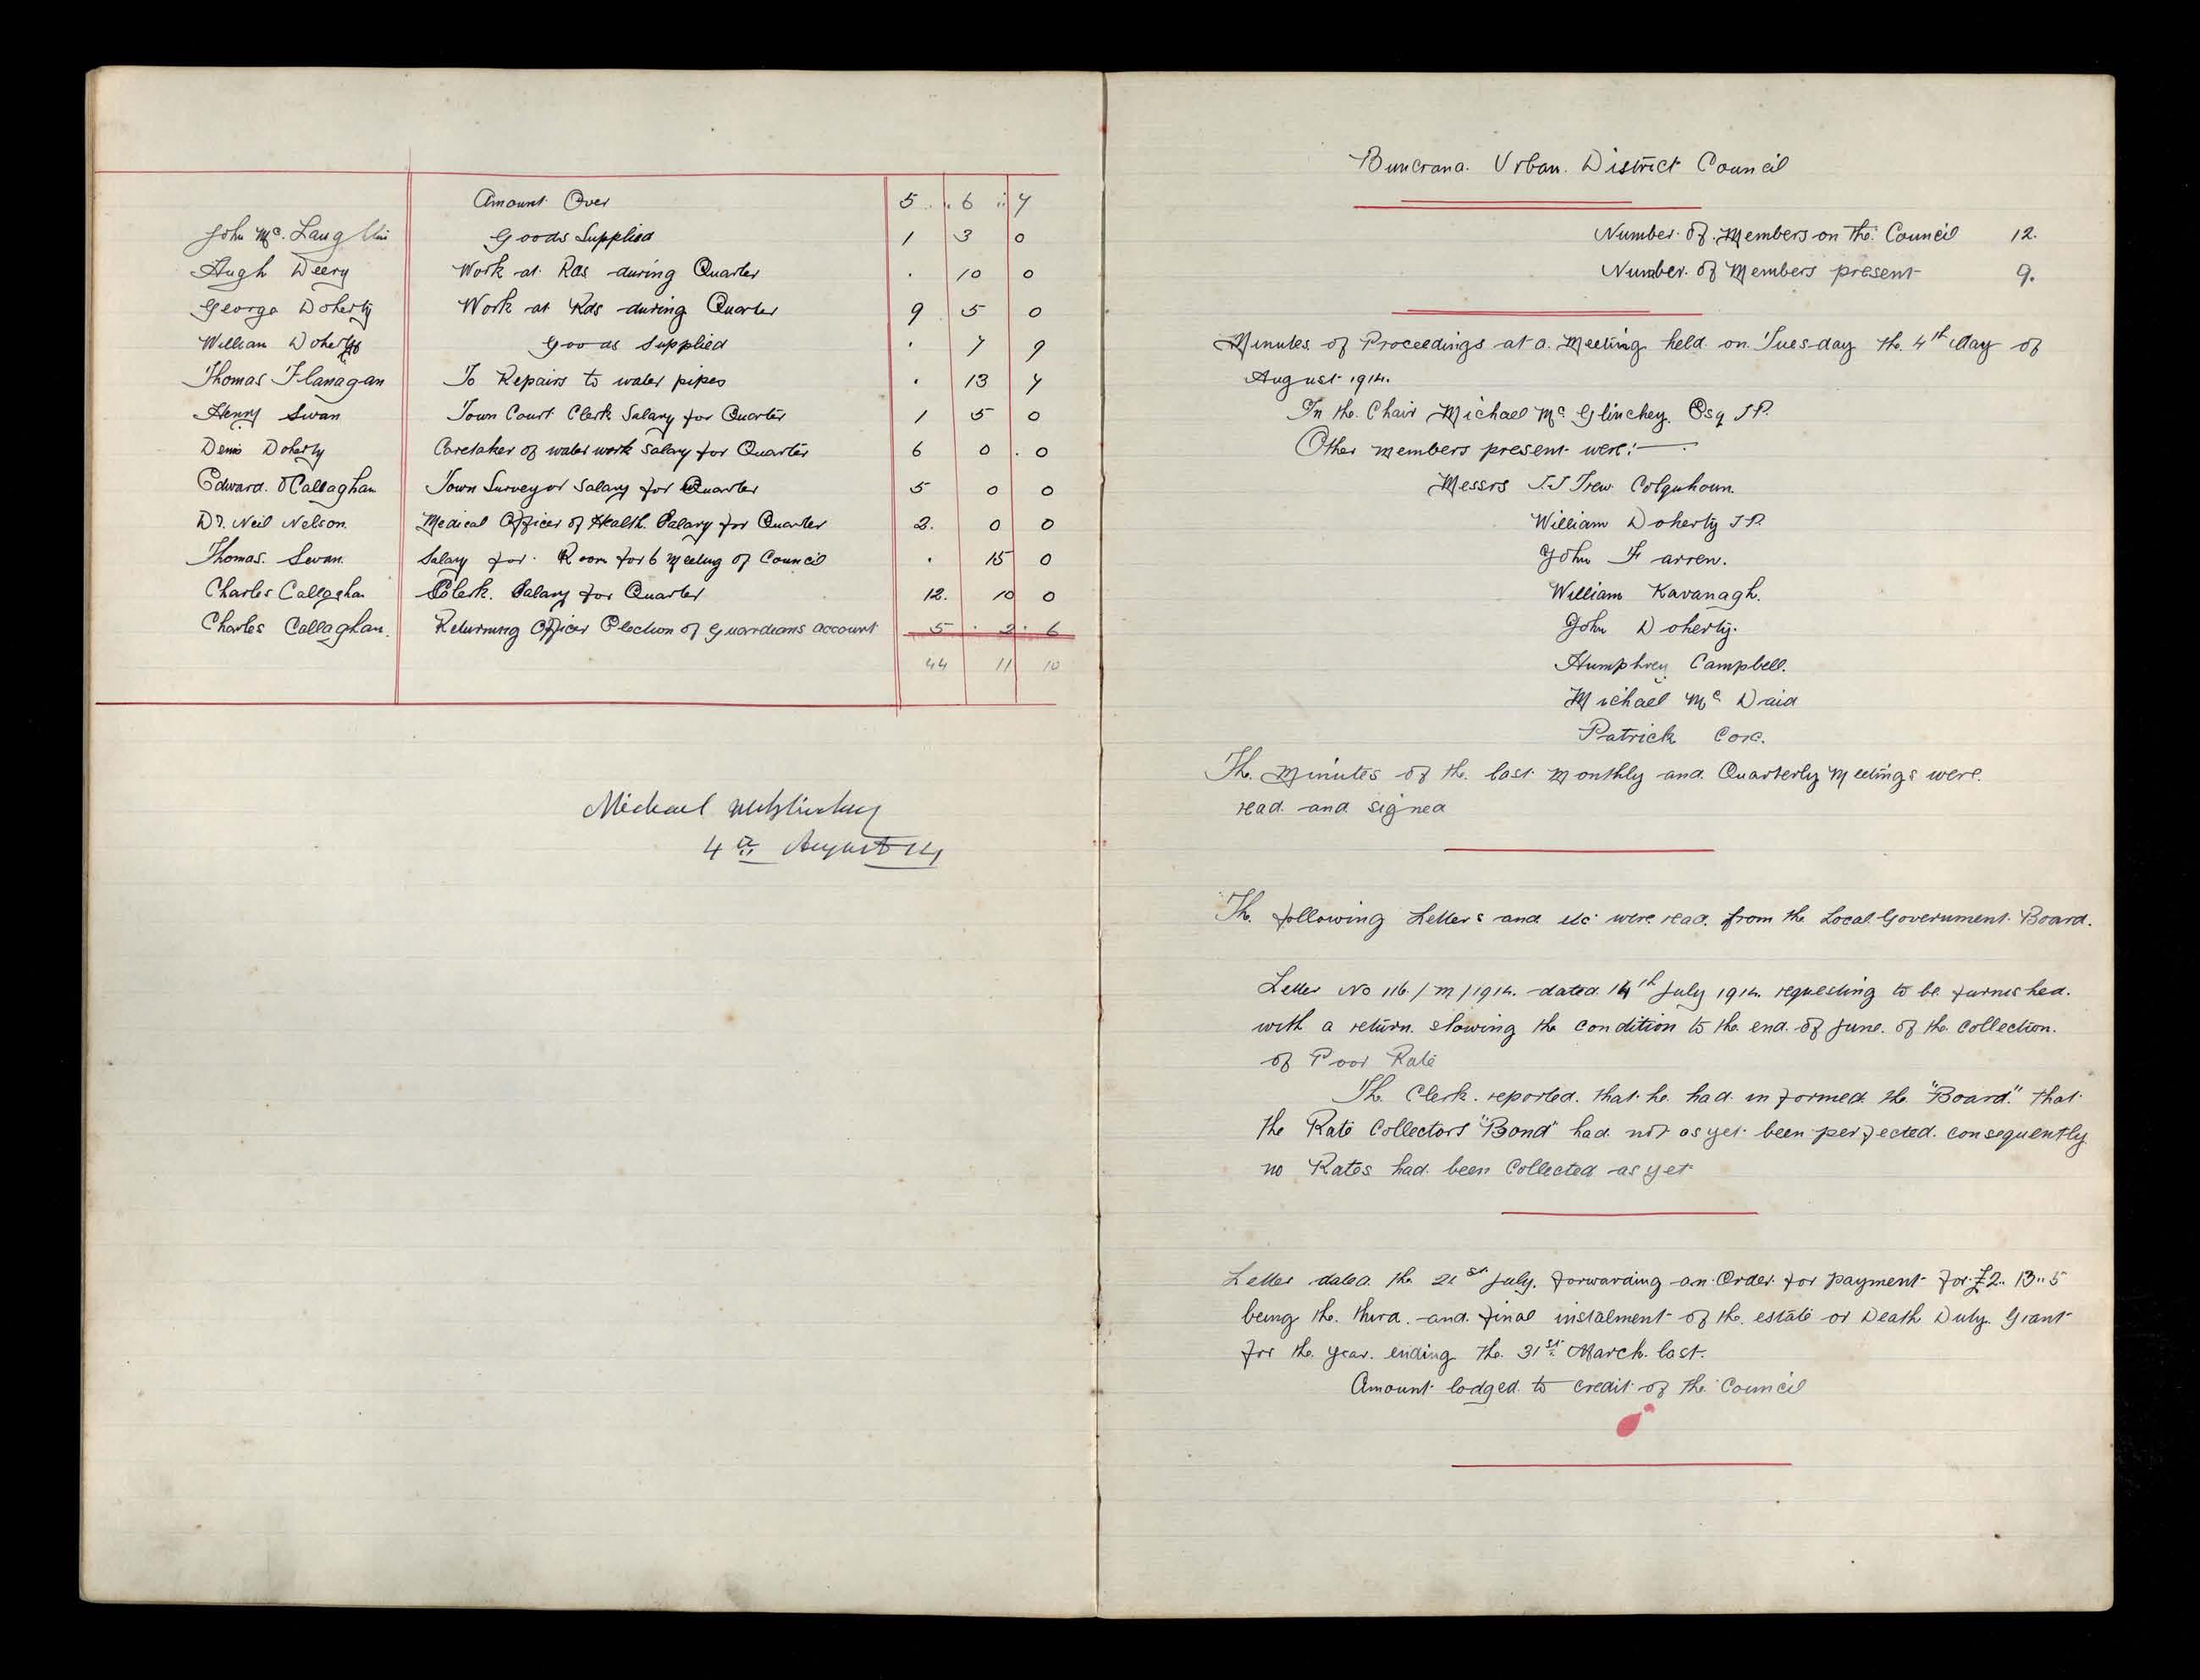 Amount Over 5 .. 6 .. 7
John Mc. Laughlin Goods Supplied 1 3 0
Hugh Deery Work at Rds during Quarter . 10 0
George Doherty Work at Rds during Quarter 9 5 0
William Doherty Goods Supplied . 7 9
Thomas Flanagan To Repairs to water pipes . 13 4
Henry Swan Town Court Clerk Salary for Quarter 1 5 0
Denis Doherty Caretaker of water work Salary for Quarter 6 0 . 0
Edward. O'Callaghan Town Surveyor Salary for Quarter 5 0 0
Dr. Neil Nelson. Medical Officer of Health. Salary for Quarter 2. 0 0
Thomas. Swan. Salary for. Room for 6 Meeting of Council . 15 0
Charles Callaghan Clerk. Salary for Quarter 12. 10 0
Charles Callaghan. Returning Officer Election of Guardians account 5 . 2 . 6
44 11 10
Michael McGlinchey
4th August 14
Buncrana. Urban. District Council
Number of Members on the Council 12.
Number of Members present 9.
Minutes of Proceedings at a Meeting held on Tuesday the 4th day of
August 1914.
In the Chair Michael Mc Glinchey. Esq J.P.
Other members present were:—
Messrs J.J Trew Colquhoun.
William Doherty J.P.
John Farren.
William Kavanagh.
John Doherty.
Humphrey Campbell.
Michael Mc Daid
Patrick
The Minutes of the last Monthly and Quarterly Meetings were
read and signed
The following Letters and etc were read from the Local Government Board.
Letter No 116/M/1914. dated 14th July 1914. requesting to be furnished.
with a return showing the condition to the end of June. of the collection.
of Poor Rate
The Clerk reported that he had informed the "Board" that
the Rate Collectors "Bond" had not as yet been perfected consequently
no Rates had been Collected as yet
Letter dated the 21st July. forwarding an Order for payment for £2.. 13.. 5
being the third and final instalment of the estate or Death Duty Grant
for the year ending the 31st March last.
Amount lodged to credit of the Council